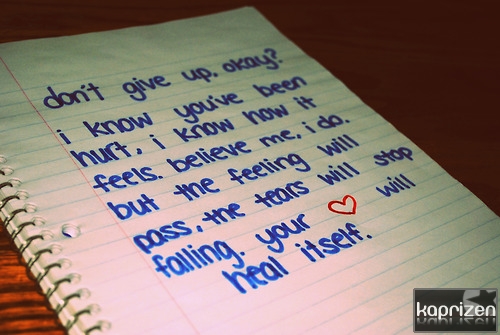 don't give up, okay?
i know you've been
hurt, i know how it
feels. believe me, i do.
but the feeling will
pass, the tears will stop
falling. your ♡ will
heal itself.
kaprizen